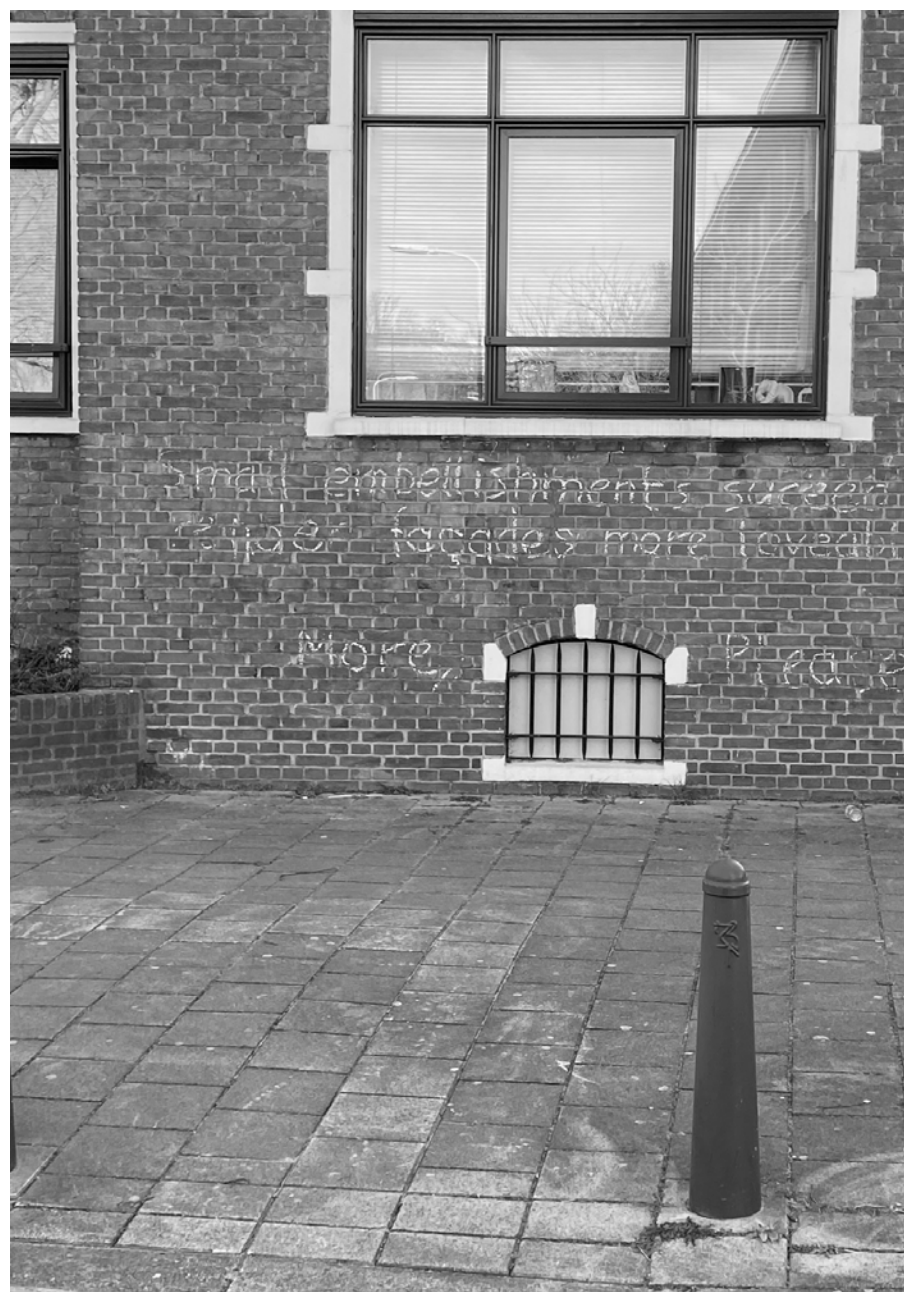 Small embellishments
façades more loveabl
More, Please